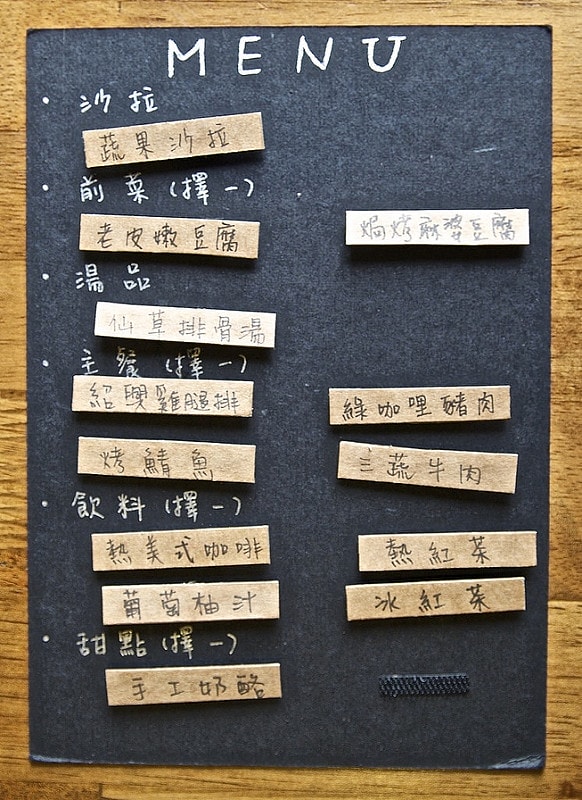 MENU
· 沙拉
蔬果沙拉
· 前菜(擇一)
老皮嫩豆腐
焗烤麻婆豆腐
· 湯品
仙草排骨湯
· 主餐(擇一)
紹興雞腿排
綠咖哩豬肉
烤鯖魚
蔬牛肉
· 飲料(擇一)
熱美式咖啡
熱紅茶
葡萄柚汁
冰紅茶
· 甜點(擇一)
手工奶酪